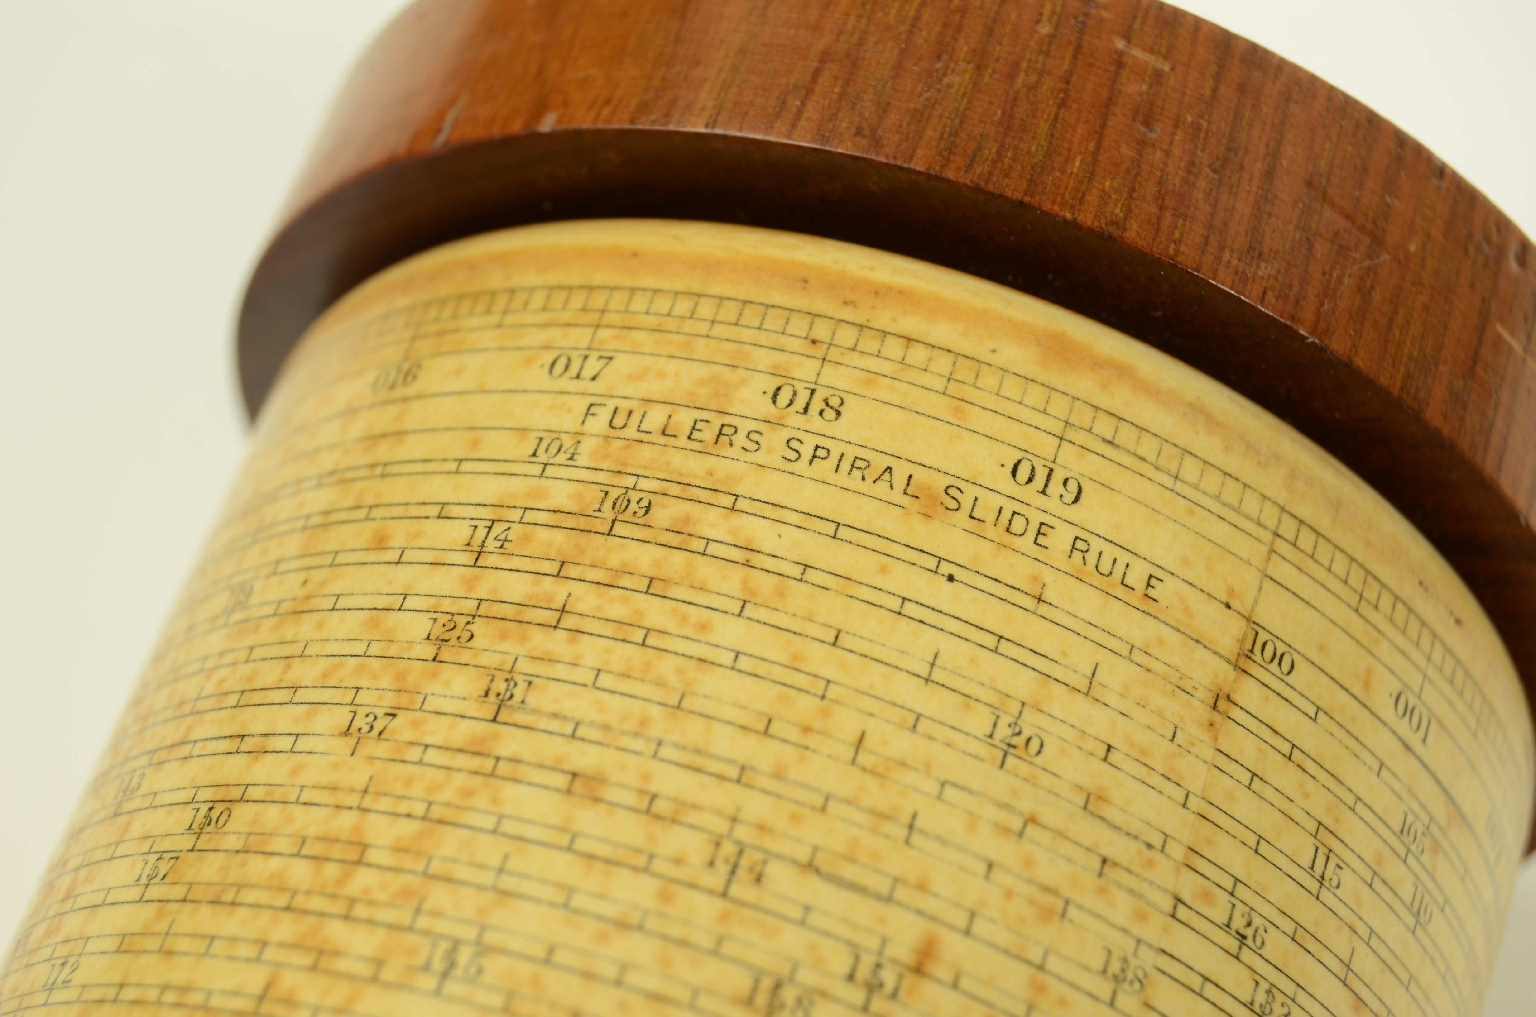 ·016 ·017 ·018 ·019
FULLERS SPIRAL SLIDE RULE
100 ·001
104
109
105
114
110
120 115
125
131 126
137
132
143 144 138
150
157 151
165 158
172